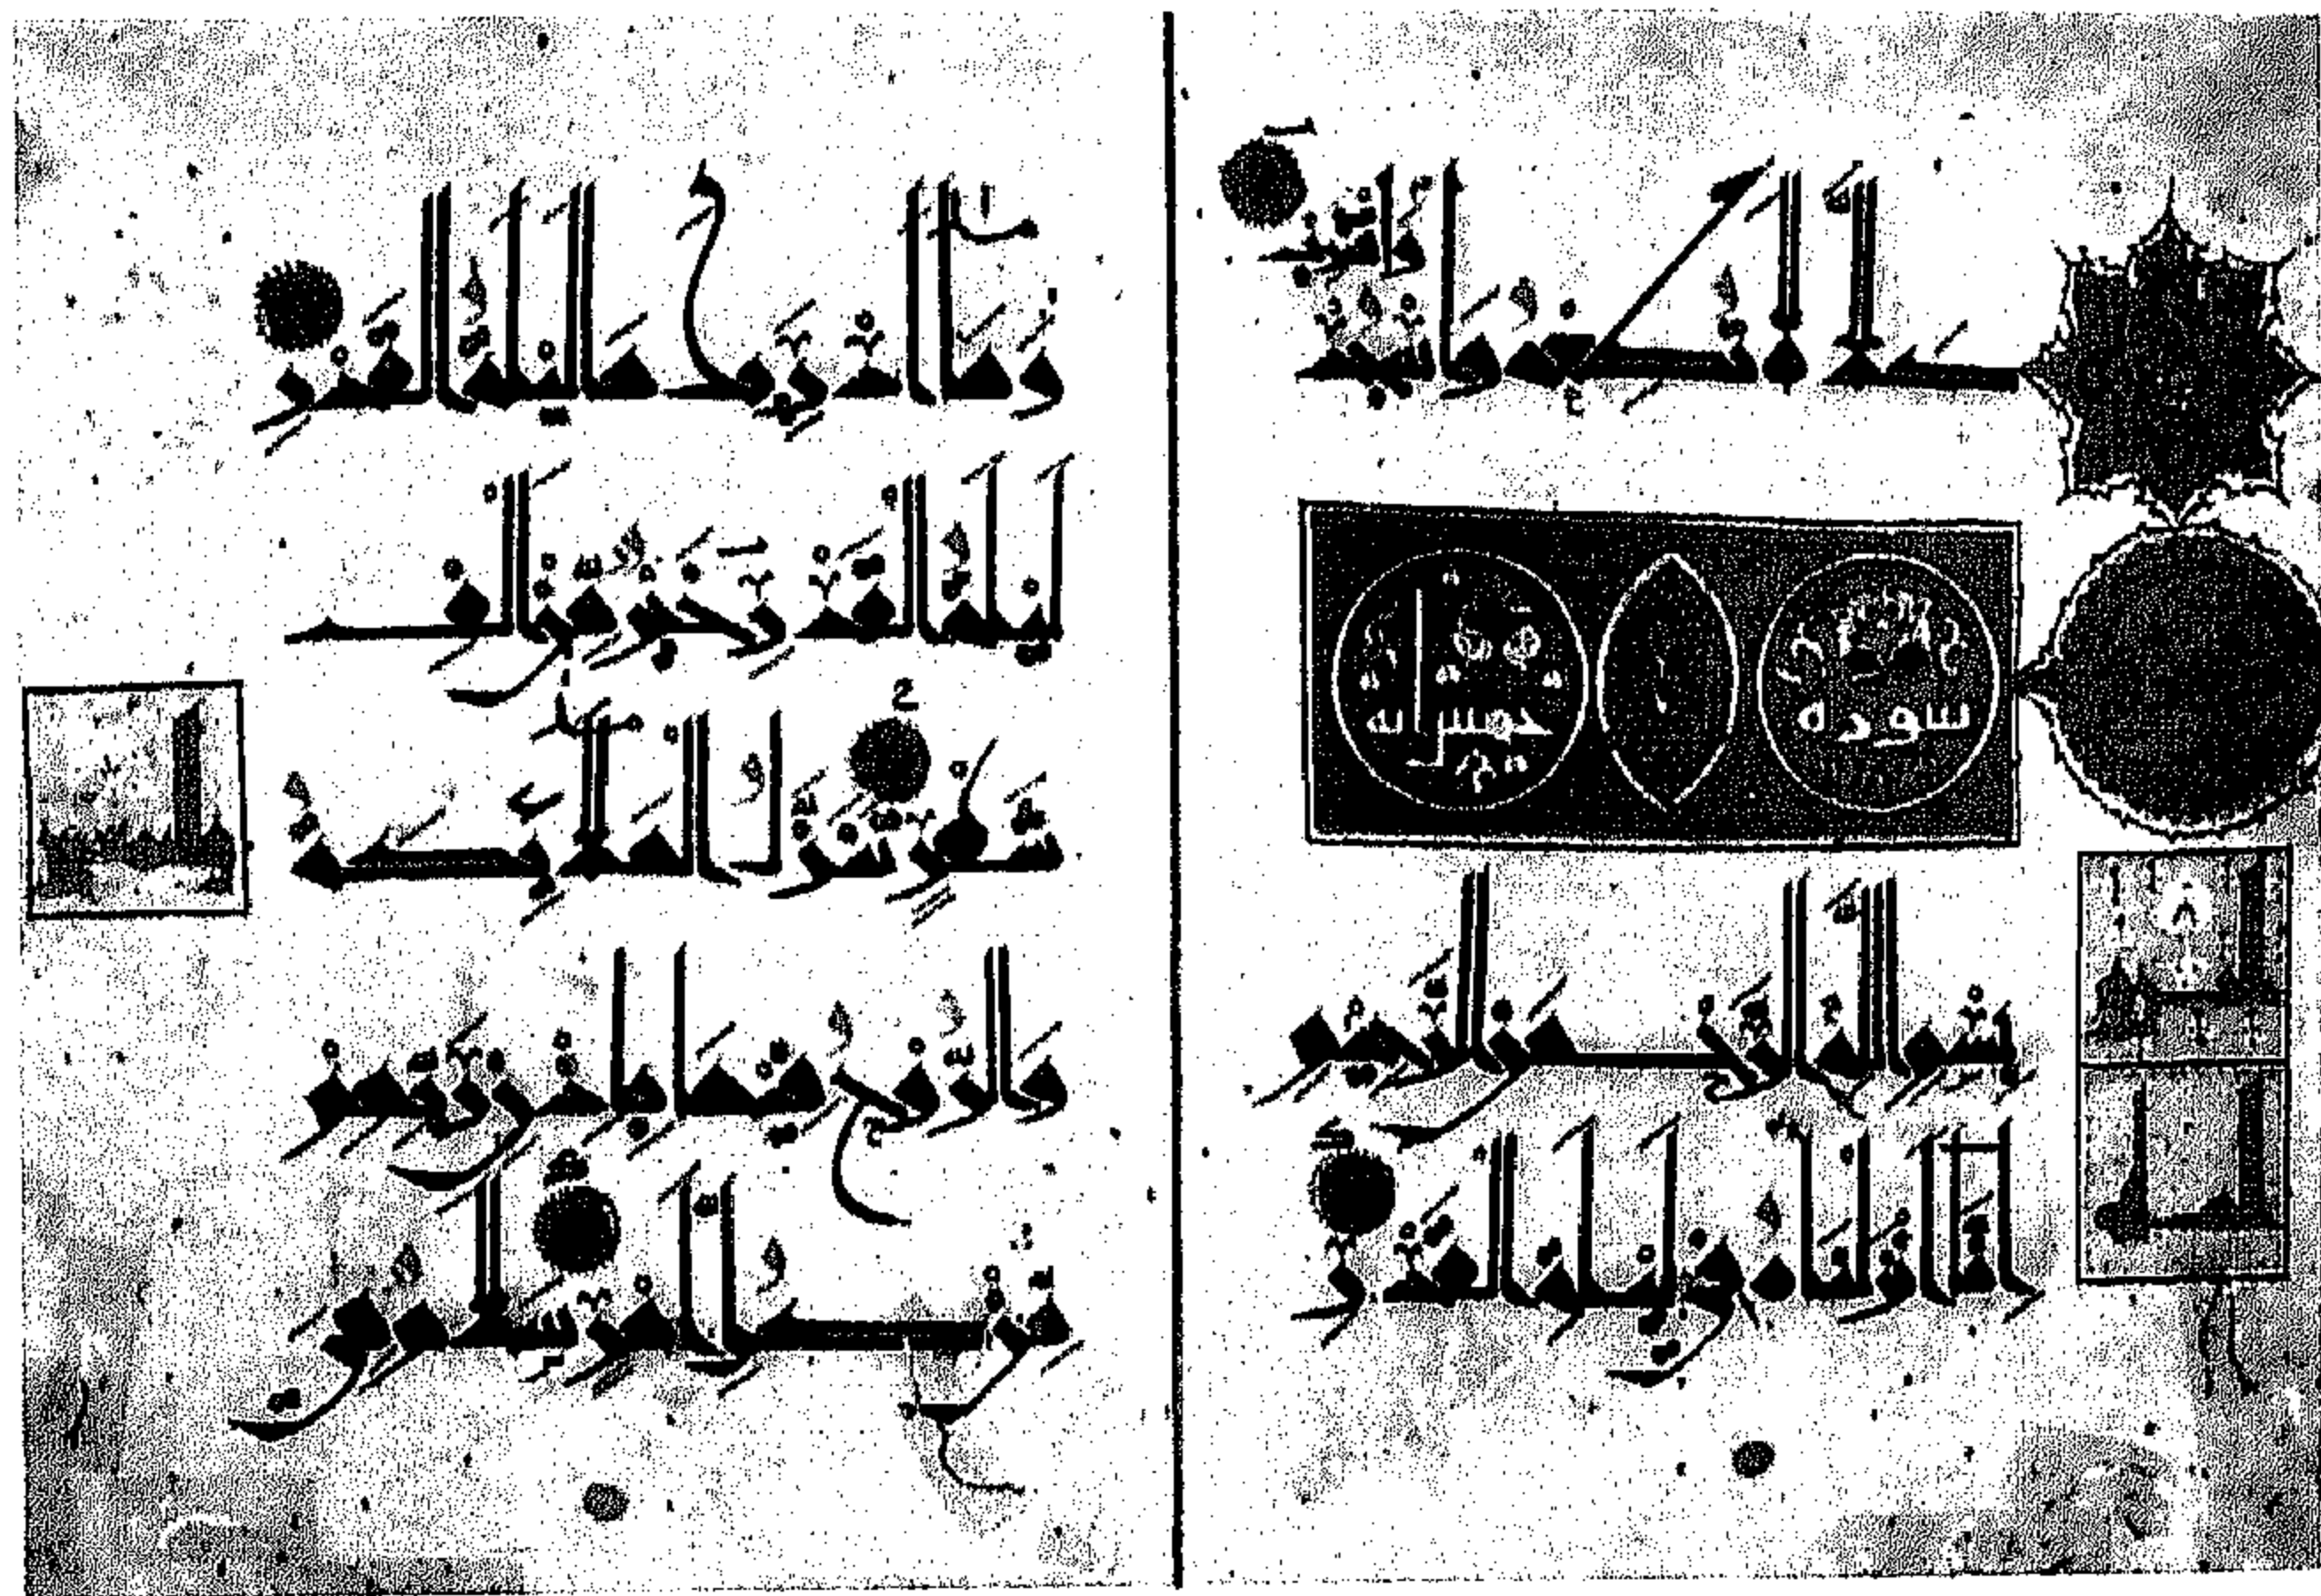 كلا لا تطعه واسجد واقترب
سورة
خمس ايه
بسم الله الرحمن الرحيم
انا انزلناه في ليلة القدر
وما ادريك ما ليلة القدر
ليلة القدر خير من الف
2
شهر تنزل الملئكة
والروح فيها باذن ربهم
من كل امر سلم هي